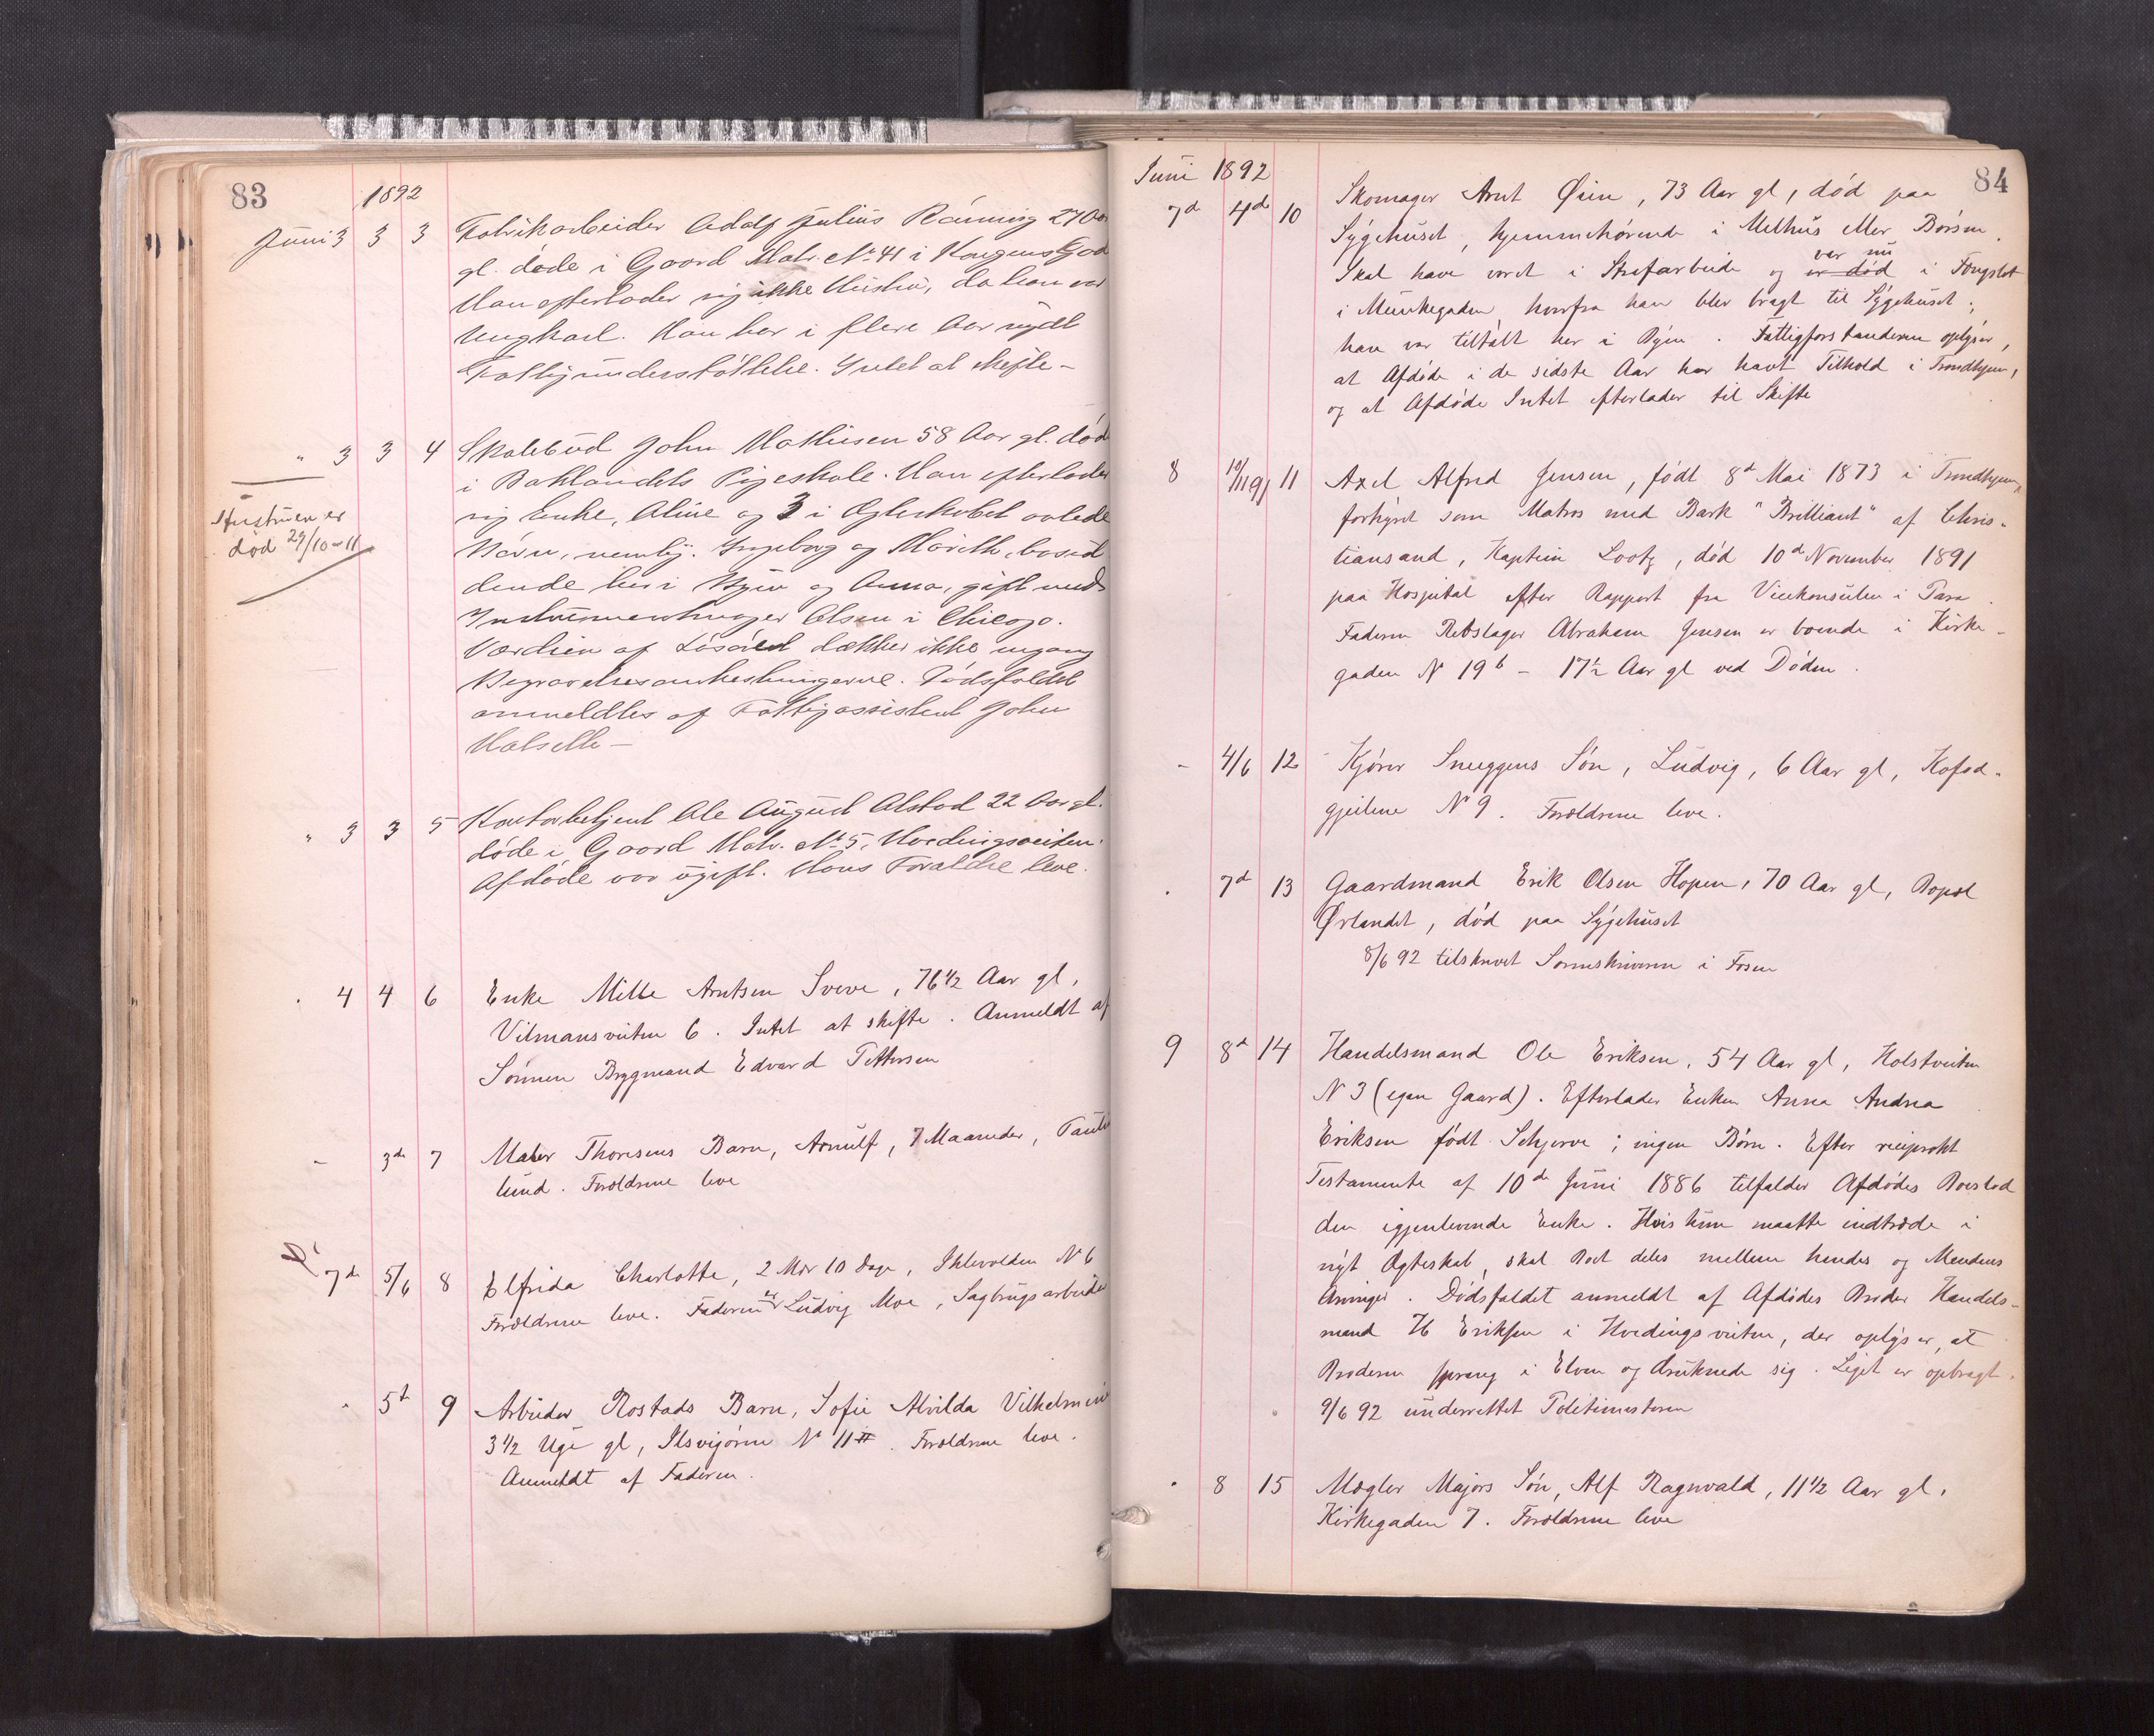 83
1892
Juni 3 3 3 Fabrikarbeider Adolf Julius Rönning 27 Aar
gl. døde i Gaard Matr. No 41 i Kongens Gad
Han efterlader sig ikke Hustru, da han var
Ungkarl. Han har i flere Aar nydt
Fattigunderstøttelse. Intet at skifte -
" 3 3 4 Skolebud John Mathisen 58 Aar gl. død
i Baklandets Pigeskole. Han efterlader
sig Enke, Aline og 3 i Ægteskabet avlede
Børn, nemlig. Ingeborg og Marith, bosid
dende her i Byen og Anna, gift med
Instrumentmager Olsen i Chicago.
Værdien af Løsøret dækker ikke engang
Begravelsesomkostningerne. Dødsfaldet
anmeldtes af Fattigassistent John
Halsetli -
Hustruen er
død 29/10-11
" 3 3 5 Kontorbetjent Ole August Alstad 22 Aar gl.
døde i Gaard Matr. No 5, Hvedingsveiten.
Afdøde var ugift. Hans Forældre leve.
" 4 4 6 Enke Mille Arntsen Sveve, 76 1/2 Aar gl,
Vilmansveiten 6. Intet at skifte. Anmeldt af
Sønnen Brygmand Edvard Pettersen
- 3de 7 Maler Thoresens Barn, Arnulf, 7 Maaneder,
lund. Forældrene leve
7de 5/6 8 Elfrida Charlotte, 2 Mdr 10 Dage, Ihlevolden No 6
Forældrene leve. Faderen er Ludvig Moe, Sagbrugsarbeide
" 5t 9 Arbeider Rostads Barn, Sofie Alvilda Vilhelmine
3 1/2 Uge gl, Ilsvigøren No 11 II. Forældrene leve.
Anmeldt af Faderen.
84
Juni 1892
7d 4de 10 Skomager Arnt Øien, 73 Aar gl, død paa
Sygehuset, hjemmehørende i Melhus eller Børsen.
Skal have været i Strafarbeide og er død var nu i Fængslet
i Munkegaden, hvorfra han blev bragt til Sygehuset;
han var tiltalt her i Byen. Fattigforstanderen oplyser,
at Afdøde i de sidste Aar har havt Tilhold i Trondhjem,
og at Afdøde Intet efterlader til Skifte
8 10/11 91 11 Axel Alfred Jensen, født 8d Mai 1873 i Trondhjem,
forhyret som Matros med Bark "Brilliant" af Chris-
tiansand, Kaptein Lootz, død 10d November 1891
paa Hospital efter Rapport fra Vicekonsulen i Para.
Faderen Rebslager Abraham Jensen er boende i Kirke-
gaden No 19b - 17 1/2 Aar gl ved Døden.
- 4/6 12 Kjører Snuggens Søn, Ludvig, 6 Aar gl, Kofod-
gjeilene No 9. Forældrene leve.
" 7d 13 Gaardmand Erik Olsen Hopen, 70 Aar gl, Bopæl
Ørlandet, død paa Sygehuset
8/6 92 tilskrevet Sorenskriveren i Fosen
9 8d 14 Handelsmand Ole Eriksen, 54 Aar gl, Holstveiten
No 3 (egen Gaard). Efterlader Enken Anna Andrea
Eriksen født Schjerve; ingen Børn. Efter reciprokt
Testamente af 10de Juni 1886 tilfalder Afdødes Boeslod
den igjenlevende Enke. Hvis hun maatte indtræde i
nyt Ægteskab, skal Boet deles mellem hendes og Mandens
Arvinger. Dødsfaldet anmeldt af Afdødes Broder Handels-
mand H Eriksen i Hvedingsveiten, der oplyser, at
Broderen sprang i Elven og druknede sig. Liget er opbragt.
9/6 92 underrettet Politimesteren
" 8 15 Mægler Majors Søn, Alf Ragnvald, 11 1/2 Aar gl.
Kirkegaden 7. Forældrene leve